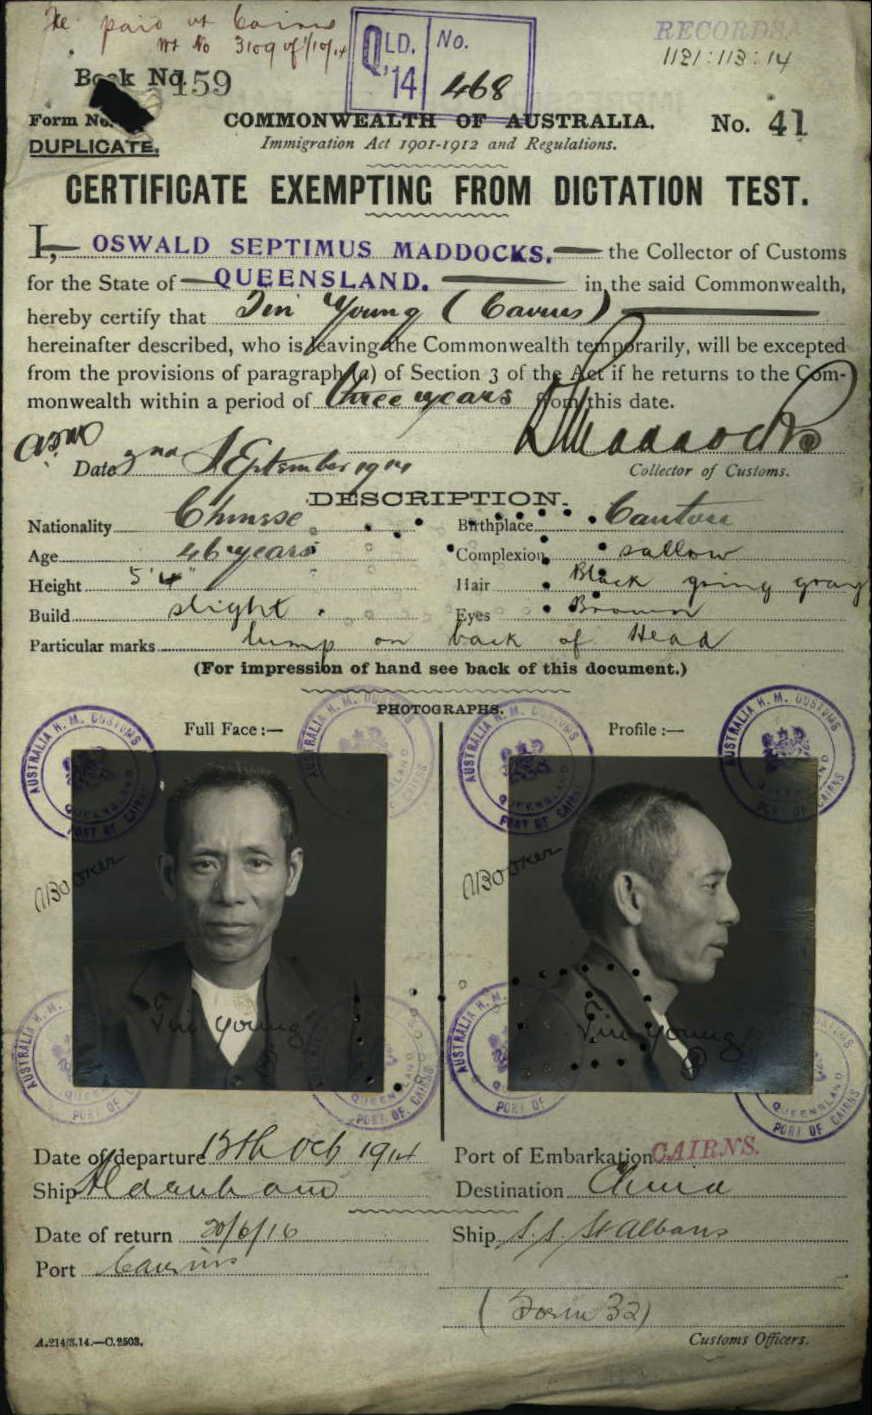 Fee paid at Cairns
No 3109 of 1/10/14
QLD. No.
'14 468
RECORDS
1121:113:14
Book No. 159
Form No.
DUPLICATE.
COMMONWEALTH OF AUSTRALIA.
No. 41
Immigration Act 1901-1912 and Regulations.
CERTIFICATE EXEMPTING FROM DICTATION TEST.
I, OSWALD SEPTIMUS MADDOCKS, the Collector of Customs
for the State of QUEENSLAND. in the said Commonwealth,
hereby certify that Tin Young (Cairns)
hereinafter described, who is leaving the Commonwealth temporarily, will be excepted
from the provisions of paragraph (a) of Section 3 of the Act if he returns to the Com-
monwealth within a period of three years from this date.
Maddocks
Date 2nd September 1914
Collector of Customs.
DESCRIPTION.
Nationality Chinese Birthplace Canton
Age 46 years Complexion sallow
Height 5'4" Hair Black going gray
Build slight Eyes Brown
Particular marks lump on back of Head
(For impression of hand see back of this document.)
PHOTOGRAPHS.
Full Face :— Profile :—
AUSTRALIA H. M. CUSTOMS QUEENSLAND PORT OF CAIRNS
AUSTRALIA H. M. CUSTOMS QUEENSLAND
AUSTRALIA H. M. CUSTOMS QUEENSLAND PORT OF CAIRNS
AUSTRALIA H. M. CUSTOMS QUEENSLAND PORT OF CAIRNS
ABooker
ABooker
Tin Young
Tin Young
AUSTRALIA H. M. PORT OF
QUEENSLAND PORT OF CAIRNS
AUSTRALIA H. M. PORT OF
QUEENSLAND PORT OF CAIRNS
Date of departure 13th Oct 1914 Port of Embarkation CAIRNS.
Ship Aldenham Destination China
Date of return 20/6/16 Ship S.S. St Albans
Port Cairns
(Form 32)
A.214/3.14.—C.2503.
Customs Officers.